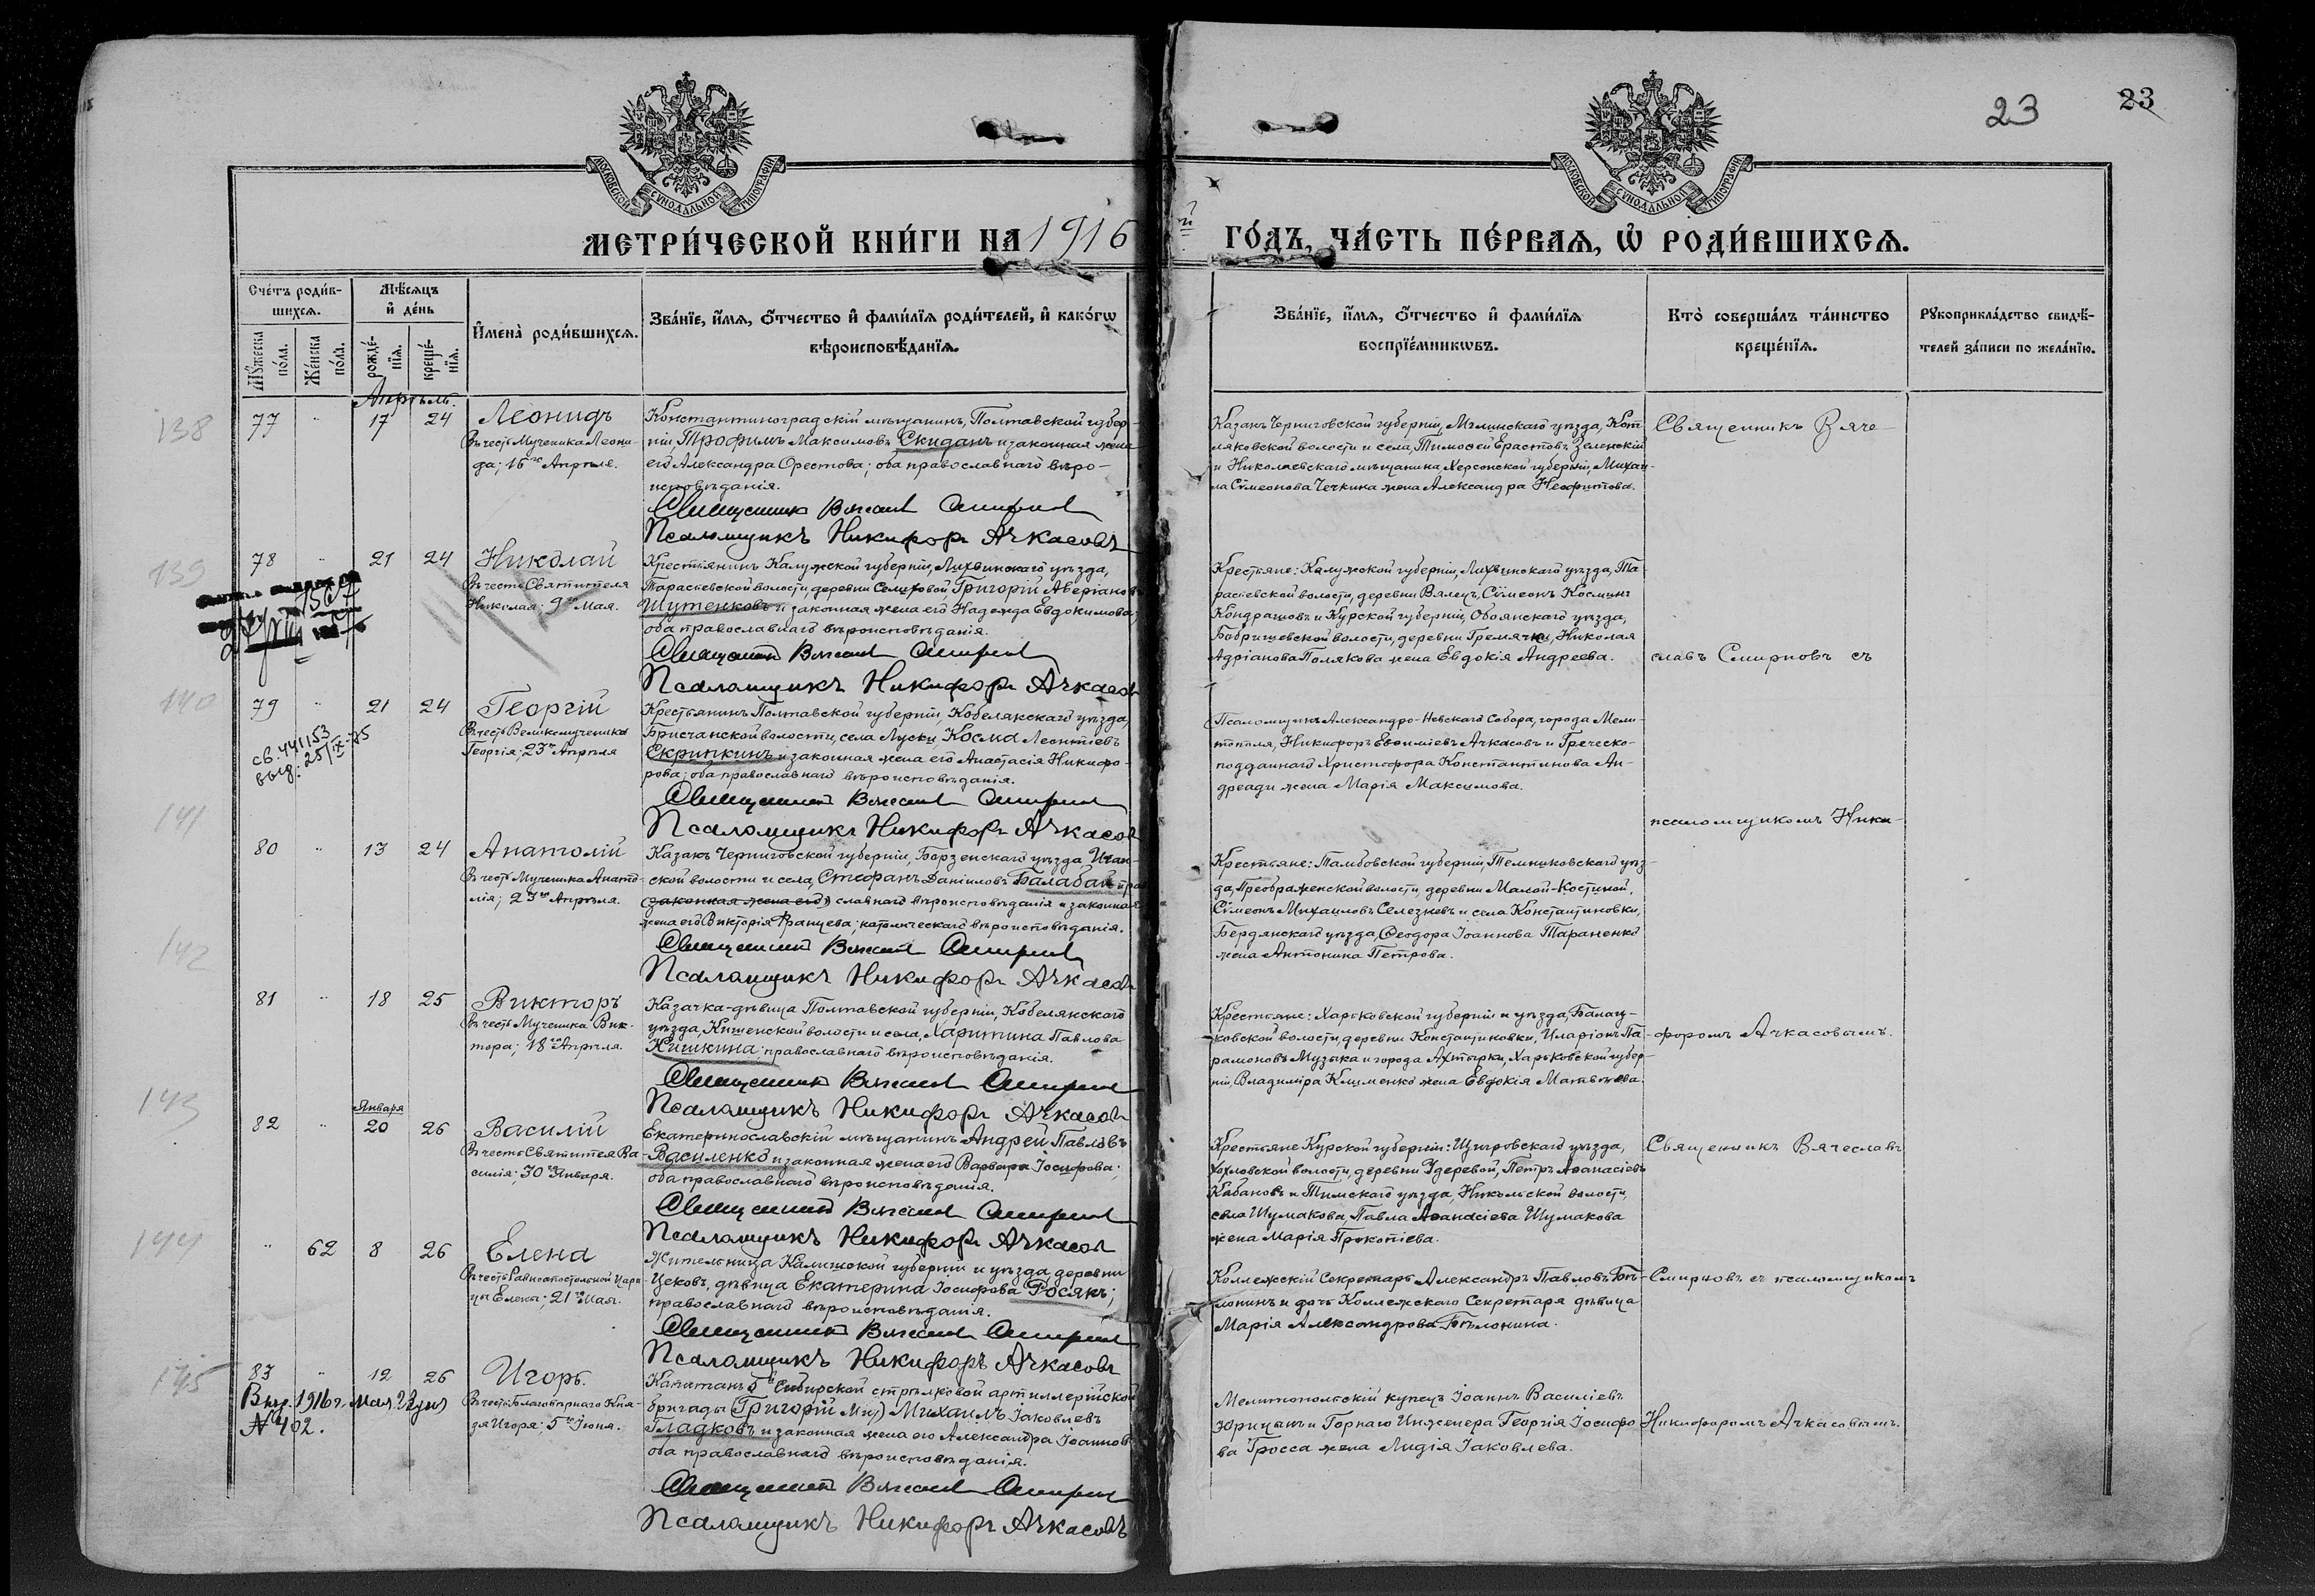 23
23
МОСКОВСКОЙ СѴНОДАЛЬНОЙ ТИПОГРАФІИ
МОСКОВСКОЙ СѴНОДАЛЬНОЙ ТИПОГРАФІИ
МЕТРИ́ЧЕСКОЙ КНИ́ГИ НА 1916 й ГО́ДЪ, ЧА́СТЬ ПЕ́РВАѦ, Ѡ҆ РОДИ́ВШИХСѦ.
Сче́тъ роди́в-
шихсѧ.
Мꙋ́жеска по́ла.
Же́нска по́лъ.
Мѣ́сѧцъ
и҆ де́нь
рожде́-
нїѧ.
креще́-
нїѧ.
И҆мена̀ роди́вшихсѧ.
Зва́нїе, и҆́мѧ, ѻ҆́тчество и҆ фами́лїѧ роди́телей, и҆ како́гѡ
вѣроисповѣ́данїѧ.
Зва́нїе, и҆́мѧ, ѻ҆́тчество и҆ фами́лїѧ
воспрїе́мникѡвъ.
Кто̀ соверша́лъ та́инство
креще́нїѧ.
Рꙋкоприкла́дство свидѣ́-
телей за́писи по жела́нїю.
Апрѣль.
138
77 " 17 24
Леонидъ
Въ честь Мученика Леони-
да; 16го Апрѣля.
Константиноградскій мѣщанинъ, Полтавской губер-
ніи, Трофимъ Максимовъ Скиданъ и законная жена
его Александра Орестова; оба православнаго вѣро-
исповѣданія.
Священникъ Вячеславъ Смирновъ
Псаломщикъ Никифоръ Ачкасовъ
Казакъ Черниговской губерніи, Мглинскаго уѣзда, Кот-
ляковской волости и села, Тимоѳей Ерастовъ Зеленскій
и Николаевскаго мѣщанина, Херсонской губерніи, Михаи-
ла Сѵмеонова Чечкина жена Александра Неофитова.
Священникъ Вяче-
139
78 " 21 24
Николай
Въ честь Святителя
Николая; 9го Мая.
Крестьянинъ Калужской губерніи, Лихвинскаго уѣзда,
Тарасьевской волости, деревни Селиховой, Григорій Аверіановъ
Шутенковъ и законная жена его Надежда Евдокимова;
оба православнаго вѣроисповѣданія.
Священникъ Вячеславъ Смирновъ
Псаломщикъ Никифоръ Ачкасовъ
Крестьяне: Калужской губерніи, Лихвинскаго уѣзда, Та-
расьевской волости, деревни Вялецъ, Сѵмеонъ Косминъ
Кондрашовъ и Курской губерніи, Обоянскаго уѣзда,
Бобрышевской волости, деревни Гремячки, Николая
Адріанова Полякова жена Евдокія Андреева.
славъ Смирновъ съ
140
79 " 21 24
Георгій
Въ честь Великомученика
Георгія; 23го Апрѣля
св. 441153
выд: 25/IX-75
Крестьянинъ Полтавской губерніи, Кобелякскаго уѣзда,
Бричанской волости, села Луски Косма Леонтіевъ
Скрипкинъ и законная жена его Анастасія Никифо-
рова; оба православнаго вѣроисповѣданія.
Священникъ Вячеславъ Смирновъ
Псаломщикъ Никифоръ Ачкасовъ
Псаломщикъ Александро-Невскаго Собора, города Мели-
тополя, Никифоръ Евѳиміевъ Ачкасовъ и Греческо-
подданнаго Христофора Константинова Ан-
дреади жена Марія Максимова.
псаломщикомъ Ники-
141
80 " 13 24
Анатолій
Въ честь Мученика Анато-
лія; 23го Апрѣля.
Казакъ Черниговской губерніи, Борзенскаго уѣзда Ичан-
ской волости и села, Стефанъ Даніиловъ Балабай пра-
(законная жена его) славнаго вѣроисповѣданія и законная
жена его Викторія Францева; католическаго вѣроисповѣданія.
Священникъ Вячеславъ Смирновъ
Псаломщикъ Никифоръ Ачкасовъ
Крестьяне: Тамбовской губерніи, Темниковскаго уѣз-
да, Преображенской волости, деревни Малой-Костиной,
Сѵмеонъ Михаиловъ Селезневъ и села Константиновки,
Бердянскаго уѣзда, Ѳеодора Іоаннова Тараненко
жена Антонина Петрова.
142
81 " 18 25
Викторъ
Въ честь Мученика Вик-
тора; 18го Апрѣля.
Казачка-дѣвица Полтавской губерніи, Кобелякскаго
уѣзда, Кишенской волости и села, Харитина Павлова
Кишкина; православнаго вѣроисповѣданія.
Священникъ Вячеславъ Смирновъ
Псаломщикъ Никифоръ Ачкасовъ
Крестьяне: Харьковской губерніи и уѣзда, Балац-
ковской волости, деревни Константиновки, Иларіонъ Па-
рамоновъ Музыка и города Ахтырки, Харьковской губер-
ніи, Владиміра Клименко жена Евдокія Матвѣева.
форомъ Ачкасовымъ.
143
Января
82 " 20 26
Василій
Въ честь Святителя Ва-
силія; 30го Января.
Екатеринославскій мѣщанинъ Андрей Павловъ
Василенко и законная жена его Варвара Іосифова;
оба православнаго вѣроисповѣданія.
Священникъ Вячеславъ Смирновъ
Псаломщикъ Никифоръ Ачкасовъ
Крестьяне Курской губерніи: Щигровскаго уѣзда,
Хохловской волости, деревни Удеревой, Петръ Аѳанасіевъ
Кабановъ и Тимскаго уѣзда, Никольской волости,
села Шумакова, Павла Аѳанасіева Шумакова
жена Марія Прокопіева.
Священникъ Вячеславъ
144
" 62 8 26
Елена
Въ честь Равноапостольной Цари-
цы Елены; 21го Мая.
Жительница Калишской губерніи и уѣзда деревни
Цековъ, дѣвица Екатерина Іосифова Росякъ;
православнаго вѣроисповѣданія.
Священникъ Вячеславъ Смирновъ
Псаломщикъ Никифоръ Ачкасовъ
Коллежскій Секретарь Александръ Павловъ Бѣ-
лонинъ и дочь Коллежскаго Секретаря дѣвица
Марія Александрова Бѣлонина.
Смирновъ съ псаломщикомъ
145
83 " 12 26
Игорь.
Въ честь Благовѣрнаго Кня-
зя Игоря; 5го Іюня.
Выд. 1916 г. Мая 23 дня
№ 402.
Капитанъ 5й Сибирской стрѣлковой артиллерійской
бригады (Григорій Ми) Михаилъ Іаковлевъ
Гладковъ и законная жена его Александра Іоаннова
оба православнаго вѣроисповѣданія.
Священникъ Вячеславъ Смирновъ
Псаломщикъ Никифоръ Ачкасовъ
Мелитопольскій купецъ Іоаннъ Василіевъ
Юрицынъ и Горнаго Инженера Георгія Іосифо-
ва Гросса жена Лидія Іаковлева.
Никифоромъ Ачкасовымъ.